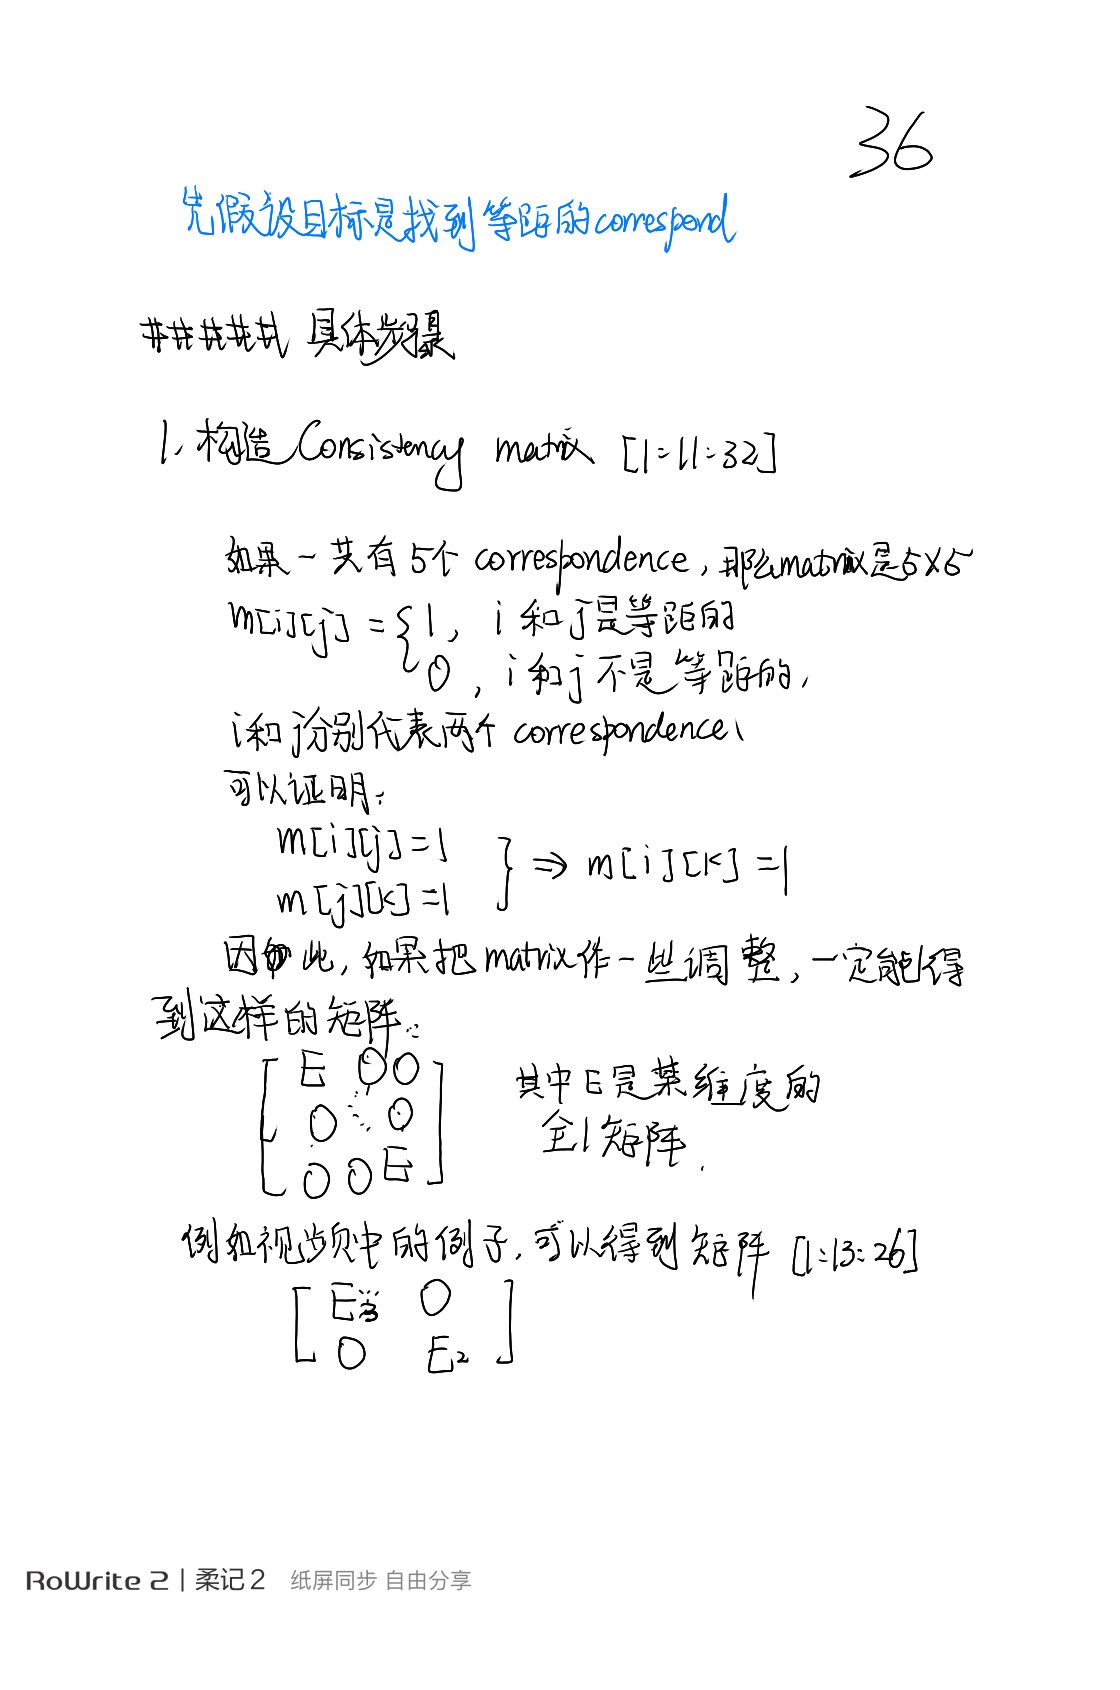 36
先假设目标是找到等距的correspond
##### 具体步骤
1. 构造Consistency matrix [1:11:32]
如果一共有5个correspondence, 那么matrix是5X5
m[i][j] = { 1, i和j是等距的
0, i和j不是等距的,
i和j分别代表两个correspondence、
可以证明:
m[i][j]=1
m[j][k]=1 } ⇒ m[i][k]=1
因此, 如果把matrix作一些调整, 一定能得
到这样的矩阵:
[ E 0 0
0 ⋱ 0
0 0 E ]
其中E是某维度的
全1矩阵.
例如视频中的例子, 可以得到矩阵 [1:13:26]
[ E3 0
0 E2 ]
RoWrite 2 | 柔记2 纸屏同步 自由分享